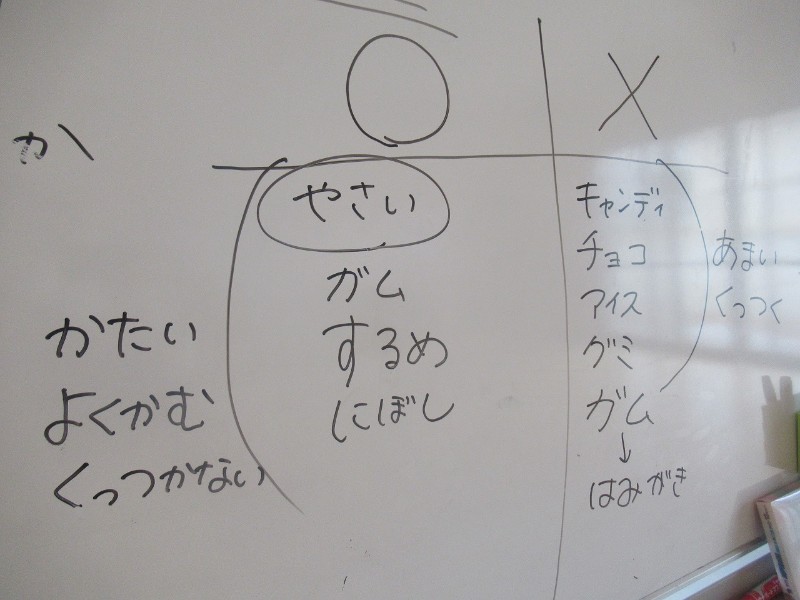 ○
×
やさい
ガム
するめ
にぼし
かたい
よくかむ
くっつかない
キャンディ
チョコ
アイス
グミ
ガム
↓
はみがき
あまい
くっつく